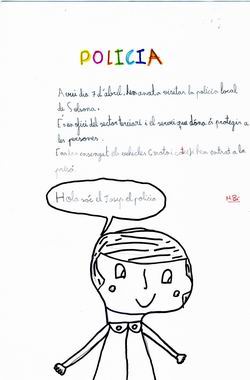 POLICIA
Avui dia 7 d'abril. hem anat a visitar la policia local
de Solsona.
És un ofici del sector terciari i el servei que dóna és protegir a
les persones.
ensenyat els vehicles han entrat a la
presó.
Hola sóc el Josep el policia
M.Be